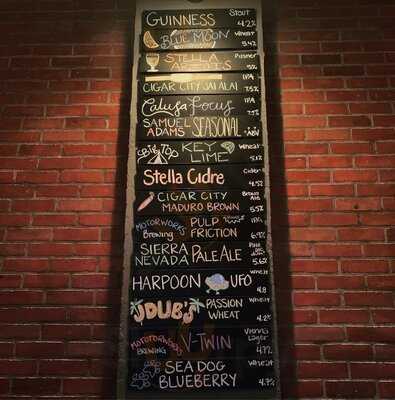 GUINNESS Stout 4.2%
BLUE MOON Wheat 5.4%
STELLA ARTOIS Pilsner 5%
CIGAR CITY JAI ALAI IPA 7.5%
Calusa Focus IPA 7%
SAMUEL ADAMS SEASONAL ABV
BIG TOP KEY LIME Wheat 5.1%
Stella Cidre Cider 4.5%
CIGAR CITY MADURO BROWN Brown Ale 5.5%
MOTORWORKS Brewing PULP FRICTION IPA
SIERRA NEVADA PALE ALE Pale Ale 5.6%
HARPOON UFO Wheat 4.8
JDUB'S PASSION WHEAT Wheat 4.2%
MOTORWORKS BREWING V-TWIN Vienna Lager 4.7%
SEA DOG BLUEBERRY 4.7%